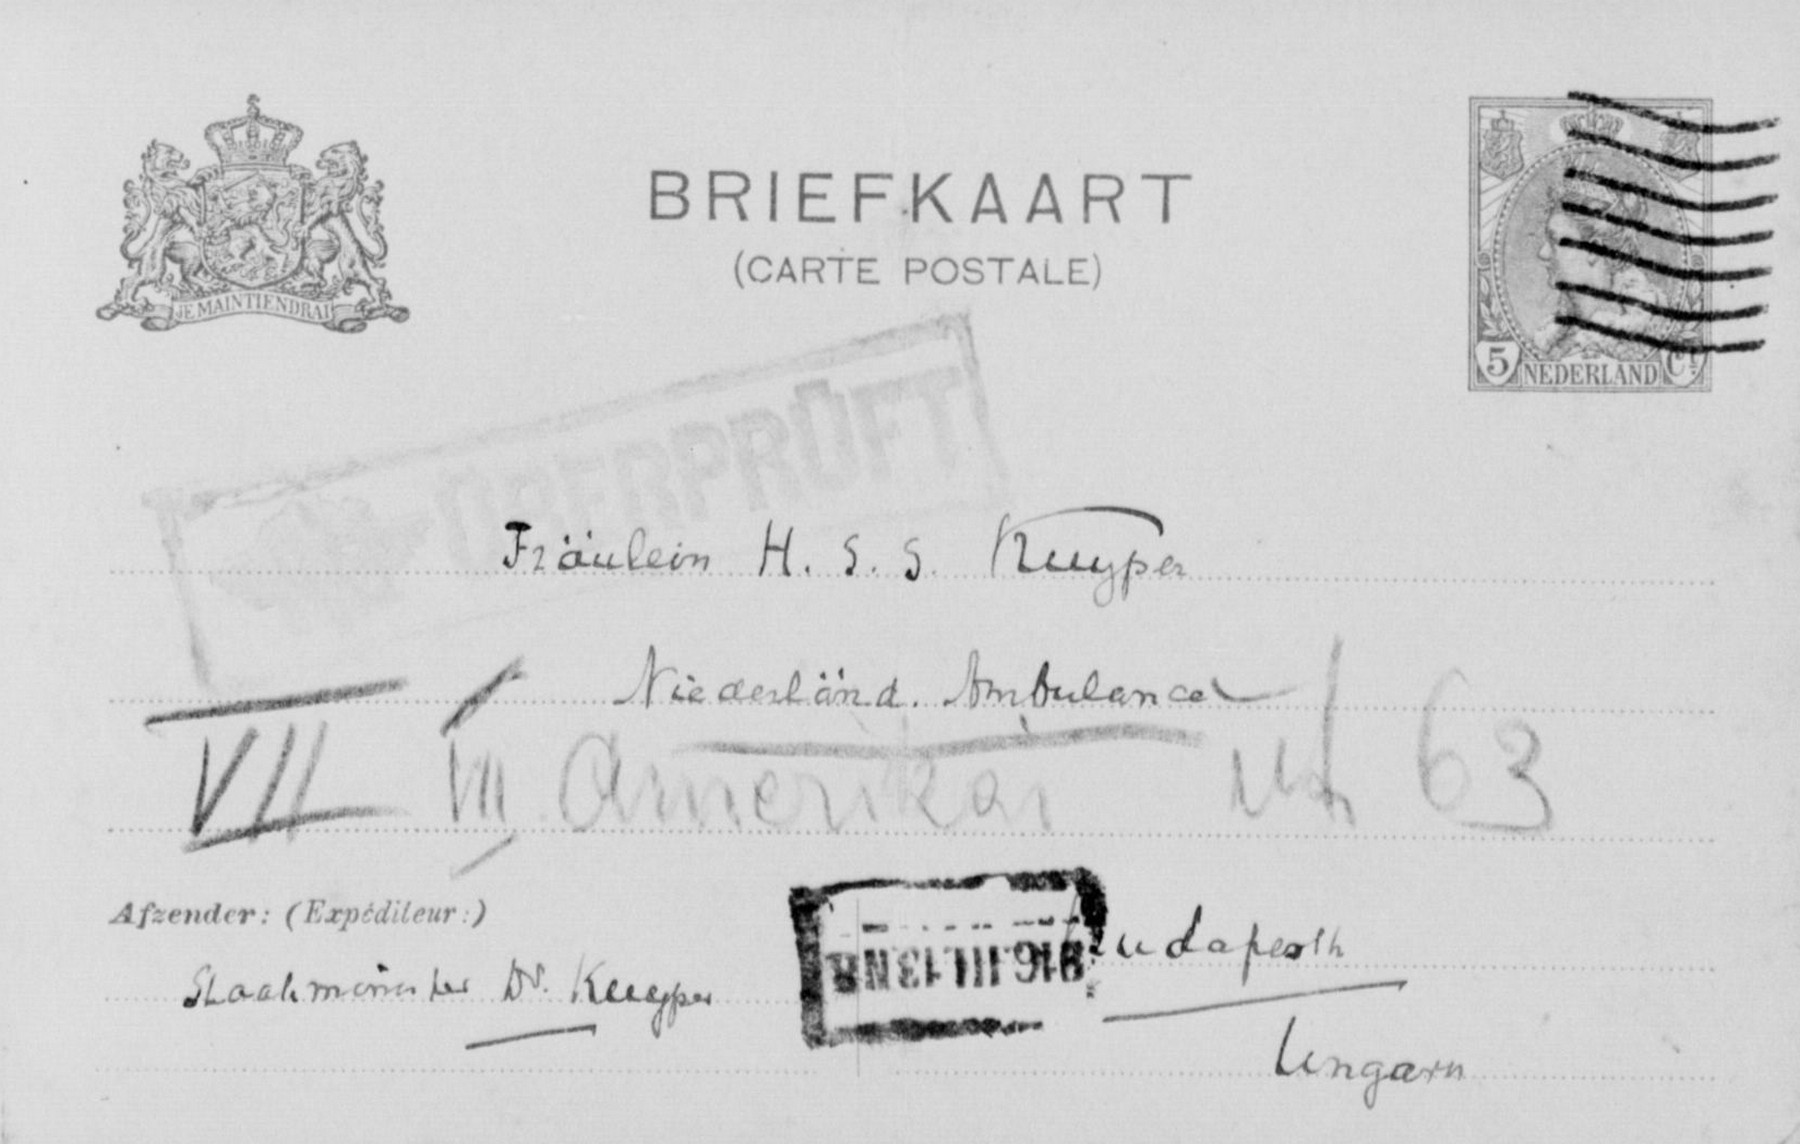 JE MAINTIENDRAI
BRIEFKAART
(CARTE POSTALE)
5 NEDERLAND CT
ÜBERPRÜFT
Fräulein H. S. S. Kuyper
Niederländ. Ambulance
VII VII. Amerikai út 63
Afzender: (Expéditeur:)
Staatsminister Dr. Kuyper
916.III.13.N8
Budapesth
Ungarn